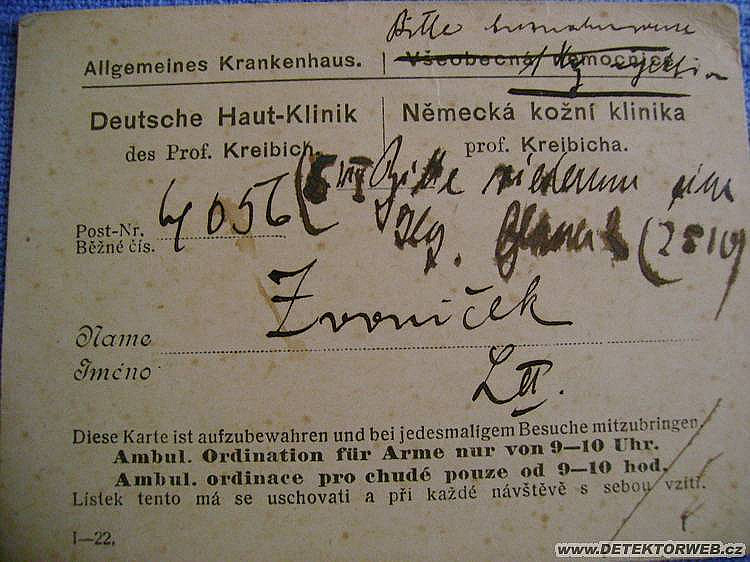 Bitte
Allgemeines Krankenhaus.
Všeobecná nemocnice
Deutsche Haut-Klinik
des Prof. Kreibich.
Německá kožní klinika
prof. Kreibicha.
Bitte
Post-Nr.
Běžné čís.
4056
(2810)
Zvoniček
Name
Jméno
L II.
Diese Karte ist aufzubewahren und bei jedesmaligem Besuche mitzubringen.
Ambul. Ordination für Arme nur von 9—10 Uhr.
Ambul. ordinace pro chudé pouze od 9—10 hod.
Lístek tento má se uschovati a při každé návštěvě s sebou vzíti.
I—22.
www.DETEKTORWEB.cz